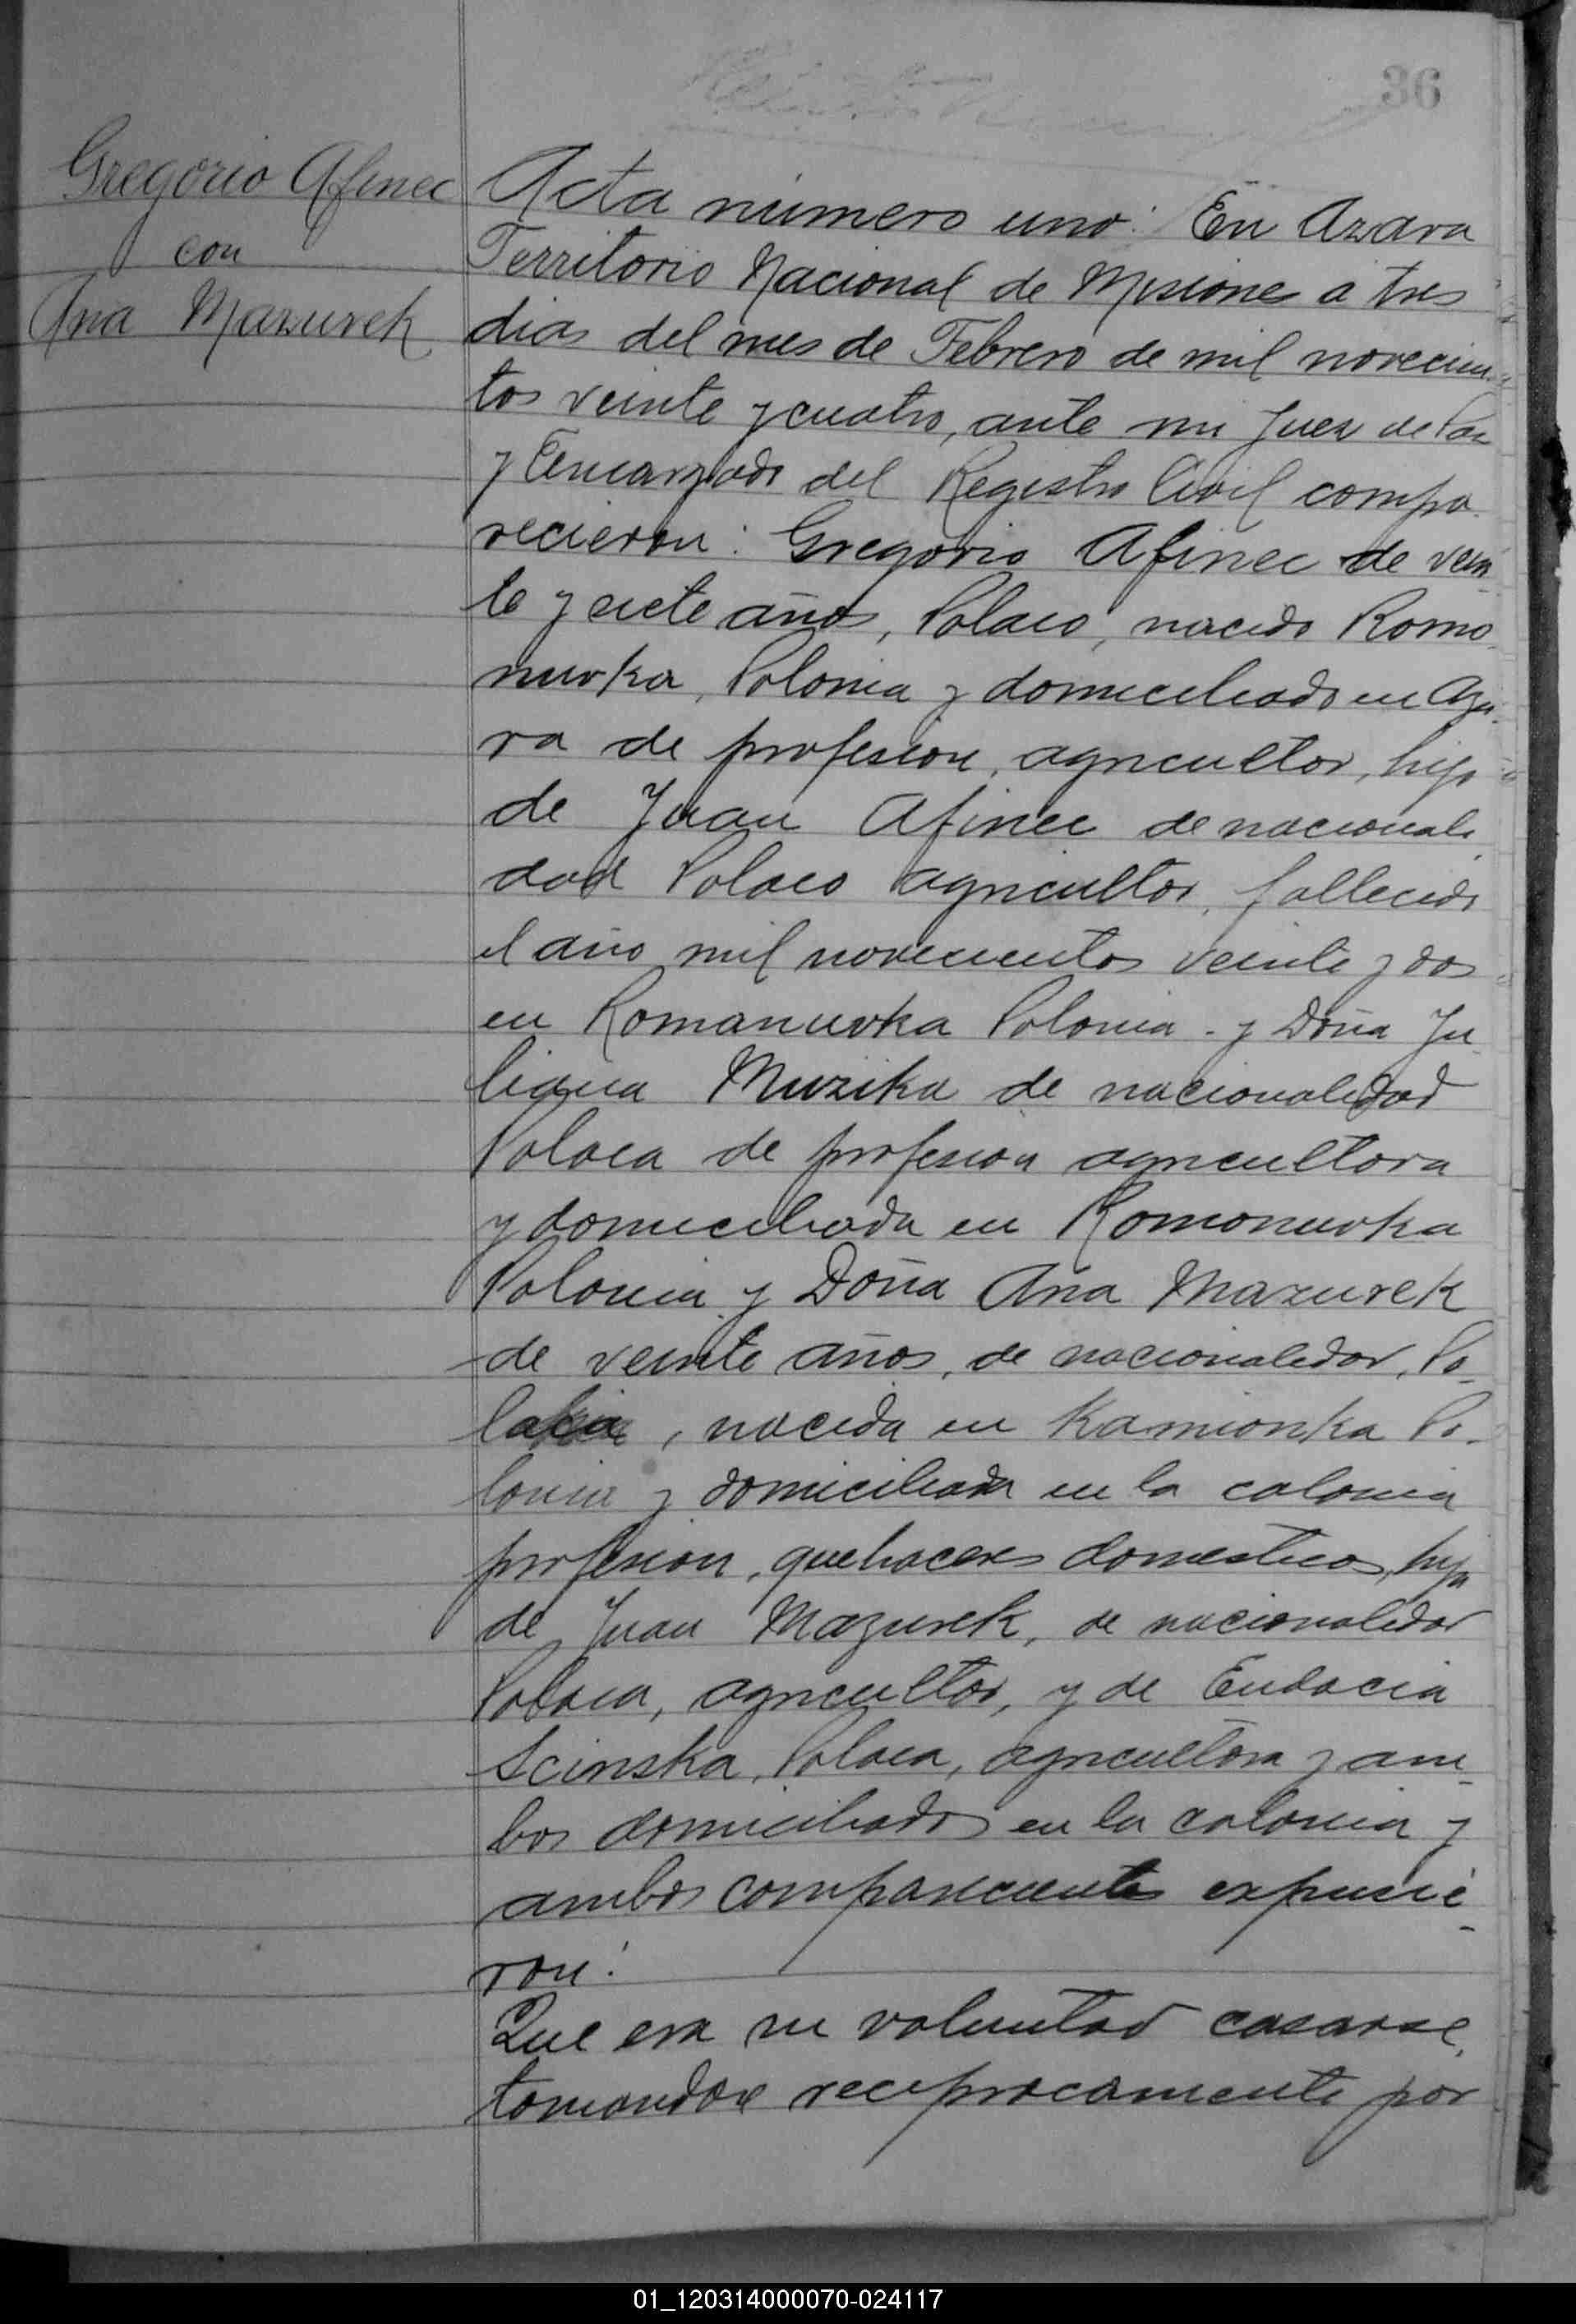 36
Gregorio Afinec
con
Ana Mazurek
Acta número uno: En Azara
Territorio Nacional de Misiones a tres
dias del mes de Febrero de mil novecien
tos veinte y cuatro, ante mi Juez de Paz
y Encargado del Registro Civil compa
recieron: Gregorio Afinec de vein
te y siete años, Polaco, nacido Romo
nuvka, Polonia y domiciliado en Aza
ra de profesion, agricultor, hijo
de Juan Afinec de nacionali
dad Polaco agricultor, fallecido
el año mil novecientos veinte y dos
en Romanuvka Polonia - y Doña Ju
liana Muzika de nacionalidad
Polaca de profesion agricultora
y domiciliada en Romonuvka
Polonia y Doña Ana Mazurek
de veinte años, de nacionalidad, Po
laca, nacida en Kamionka Po
lonia y domiciliada en la colonia
profesion, quehaceres domesticos, hija
de Juan Mazurek, de nacionalidad
Polaca, agricultor, y de Eudocia
Scinska, Polaca, agricultora y am
bos domiciliados en la colonia y
ambos comparecientes expusie
ron:
Que era su voluntad casarse,
tomandose reciprocamente por
01_120314000070-024117